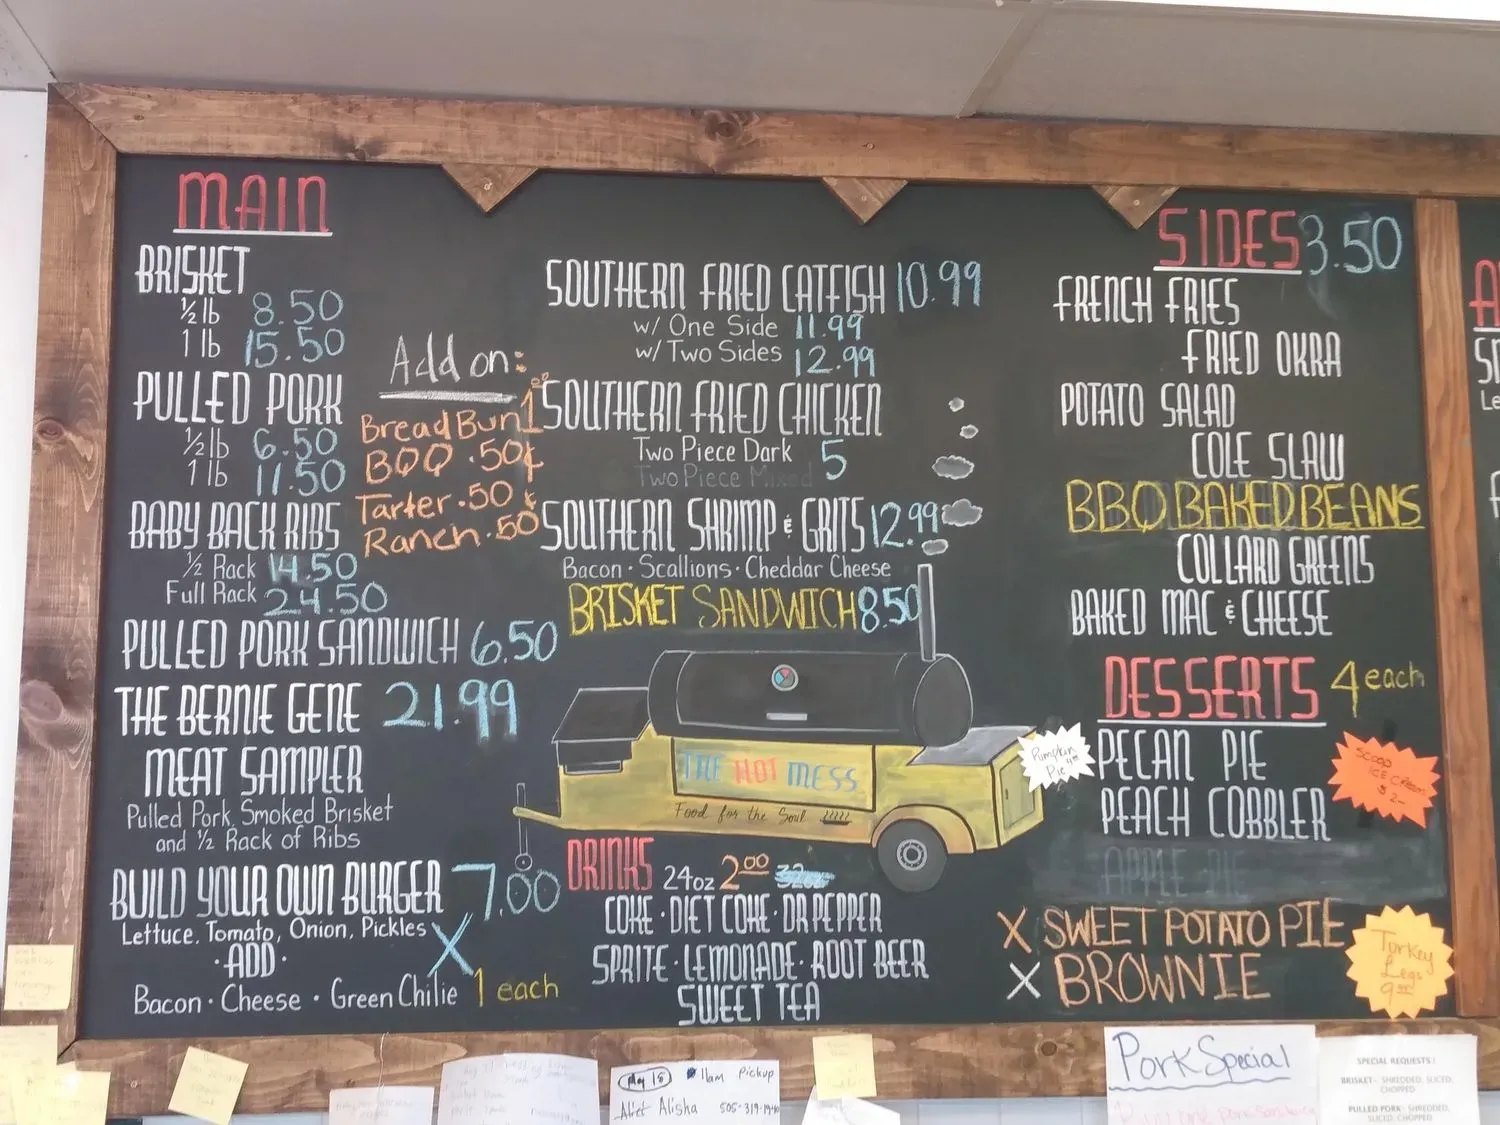 MAIN
BRISKET
½ lb 8.50
1 lb 15.50
PULLED PORK
½ lb 6.50
1 lb 11.50
BABY BACK RIBS
½ Rack 14.50
Full Rack 24.50
PULLED PORK SANDWICH 6.50
THE BERNIE GENE 21.99
MEAT SAMPLER
Pulled Pork, Smoked Brisket
and ½ Rack of Ribs
BUILD YOUR OWN BURGER 7.00
Lettuce, Tomato, Onion, Pickles X
·ADD·
Bacon · Cheese · Green Chilie 1 each
Add on:
Bread Bun 1.00
BQQ .50¢
Tarter .50¢
Ranch .50
SOUTHERN FRIED CATFISH 10.99
w/ One Side 11.99
w/ Two Sides 12.99
SOUTHERN FRIED CHICKEN
Two Piece Dark 5
Two Piece Mixed
SOUTHERN SHRIMP & GRITS 12.99
Bacon · Scallions · Cheddar Cheese
BRISKET SANDWICH 8.50
THE HOT MESS
Food for the Soul
DRINKS 24oz 2.00 32oz
COKE · DIET COKE · DR PEPPER
SPRITE · LEMONADE · ROOT BEER
SWEET TEA
SIDES 3.50
FRENCH FRIES
FRIED OKRA
POTATO SALAD
COLE SLAW
BBQ BAKED BEANS
COLLARD GREENS
BAKED MAC & CHEESE
DESSERTS 4 each
PECAN PIE
PEACH COBBLER
APPLE PIE
X SWEET POTATO PIE
X BROWNIE
Pumpkin
Pie 4.00
SCOOP
ICE CREAM
$2-
Turkey
Legs
9.00
May 15 11am Pickup
Alisha 505-319-1940
Pork Special
SPECIAL REQUESTS!
BRISKET - SHREDDED, SLICED,
CHOPPED
PULLED PORK - SHREDDED,
SLICED, CHOPPED